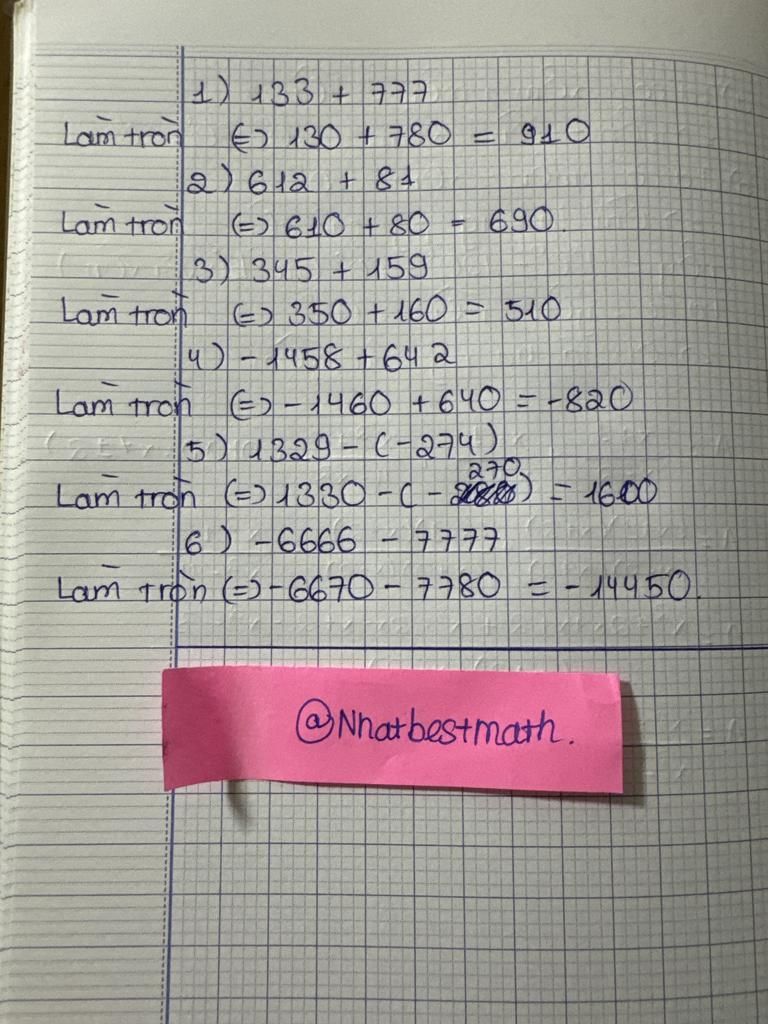 1) 133 + 777
Làm tròn (=) 130 + 780 = 910
2) 612 + 81
Làm tròn (=) 610 + 80 = 690.
3) 345 + 159
Làm tròn (=) 350 + 160 = 510
4) - 1458 + 642
Làm tròn (=) - 1460 + 640 = -820
5) 1329 - (-274)
Làm tròn (=) 1330 - (- 270) = 1600
6) -6666 - 7777
Làm tròn (=) -6670 - 7780 = - 14450.
@Nhatbestmath.